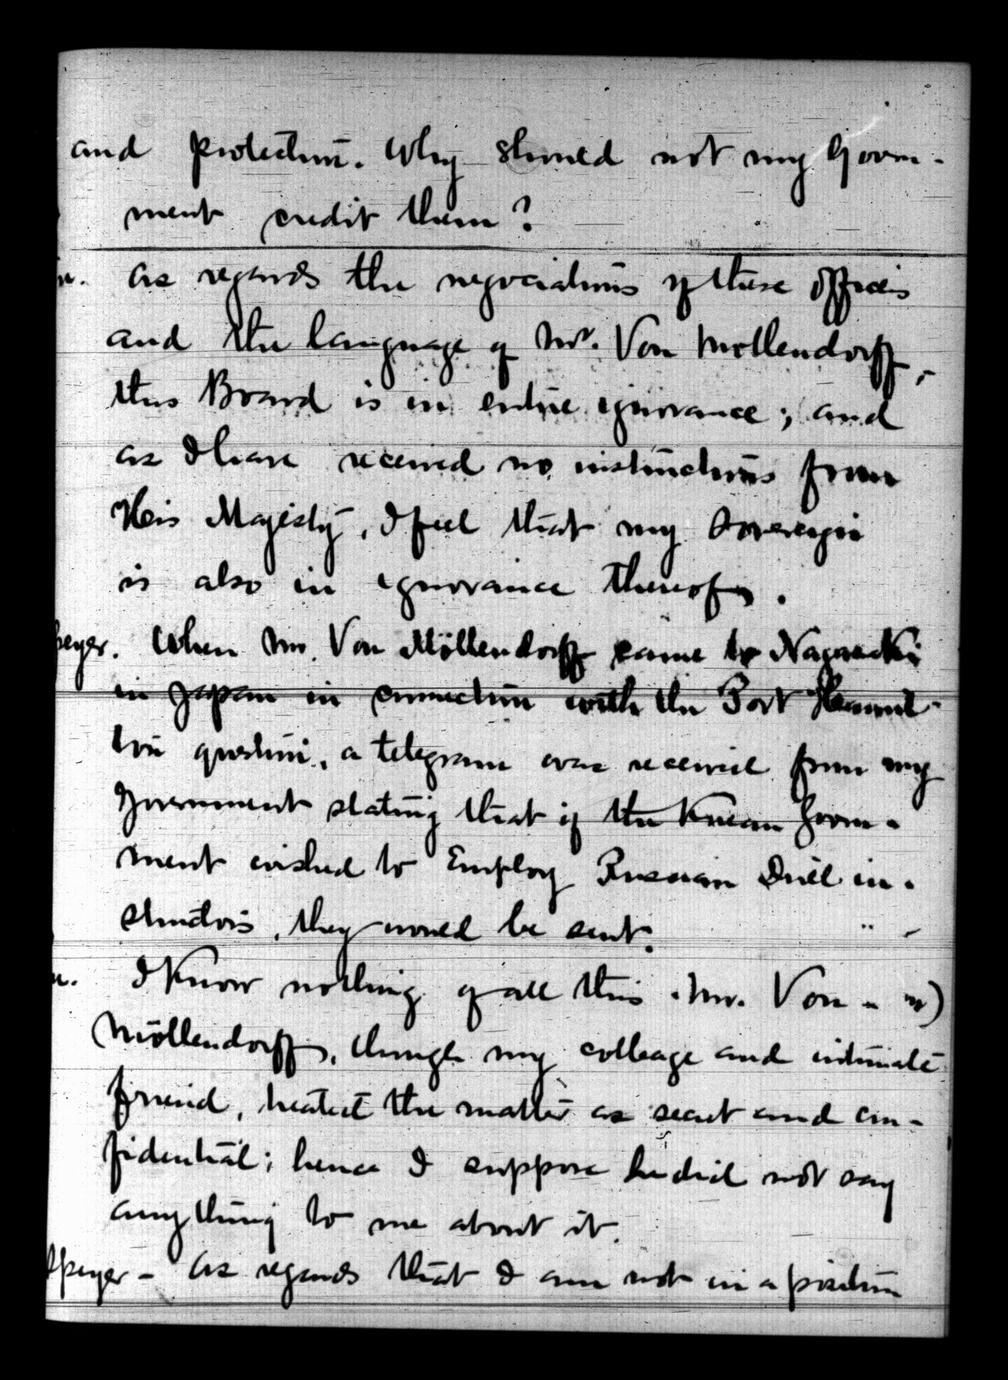 and protection. Why should not my Govern-
ment credit them?
n. As regards the negociations of these offices
and the language of Mr. Von Mollendorff,
this Board is in entire ignorance; and
as I have received no instructions from
His Majesty, I feel that my Sovereign
is also in ignorance thereof.
peyer. When Mr. Von Möllendorff came to Nagasaki
in Japan in connection with the Port Hamil-
ton question, a telegram was received from my
Government stating that if the Korean Govern-
ment wished to Employ Russian Drill in-
structors, they would be sent.
n. I know nothing of all this. Mr. Von
Möllendorff, though my colleage and intimate
friend, treated the matter as secret and con-
fidential; hence I suppose he did not say
anything to me about it.
Speyer - As regards that I am not in a position